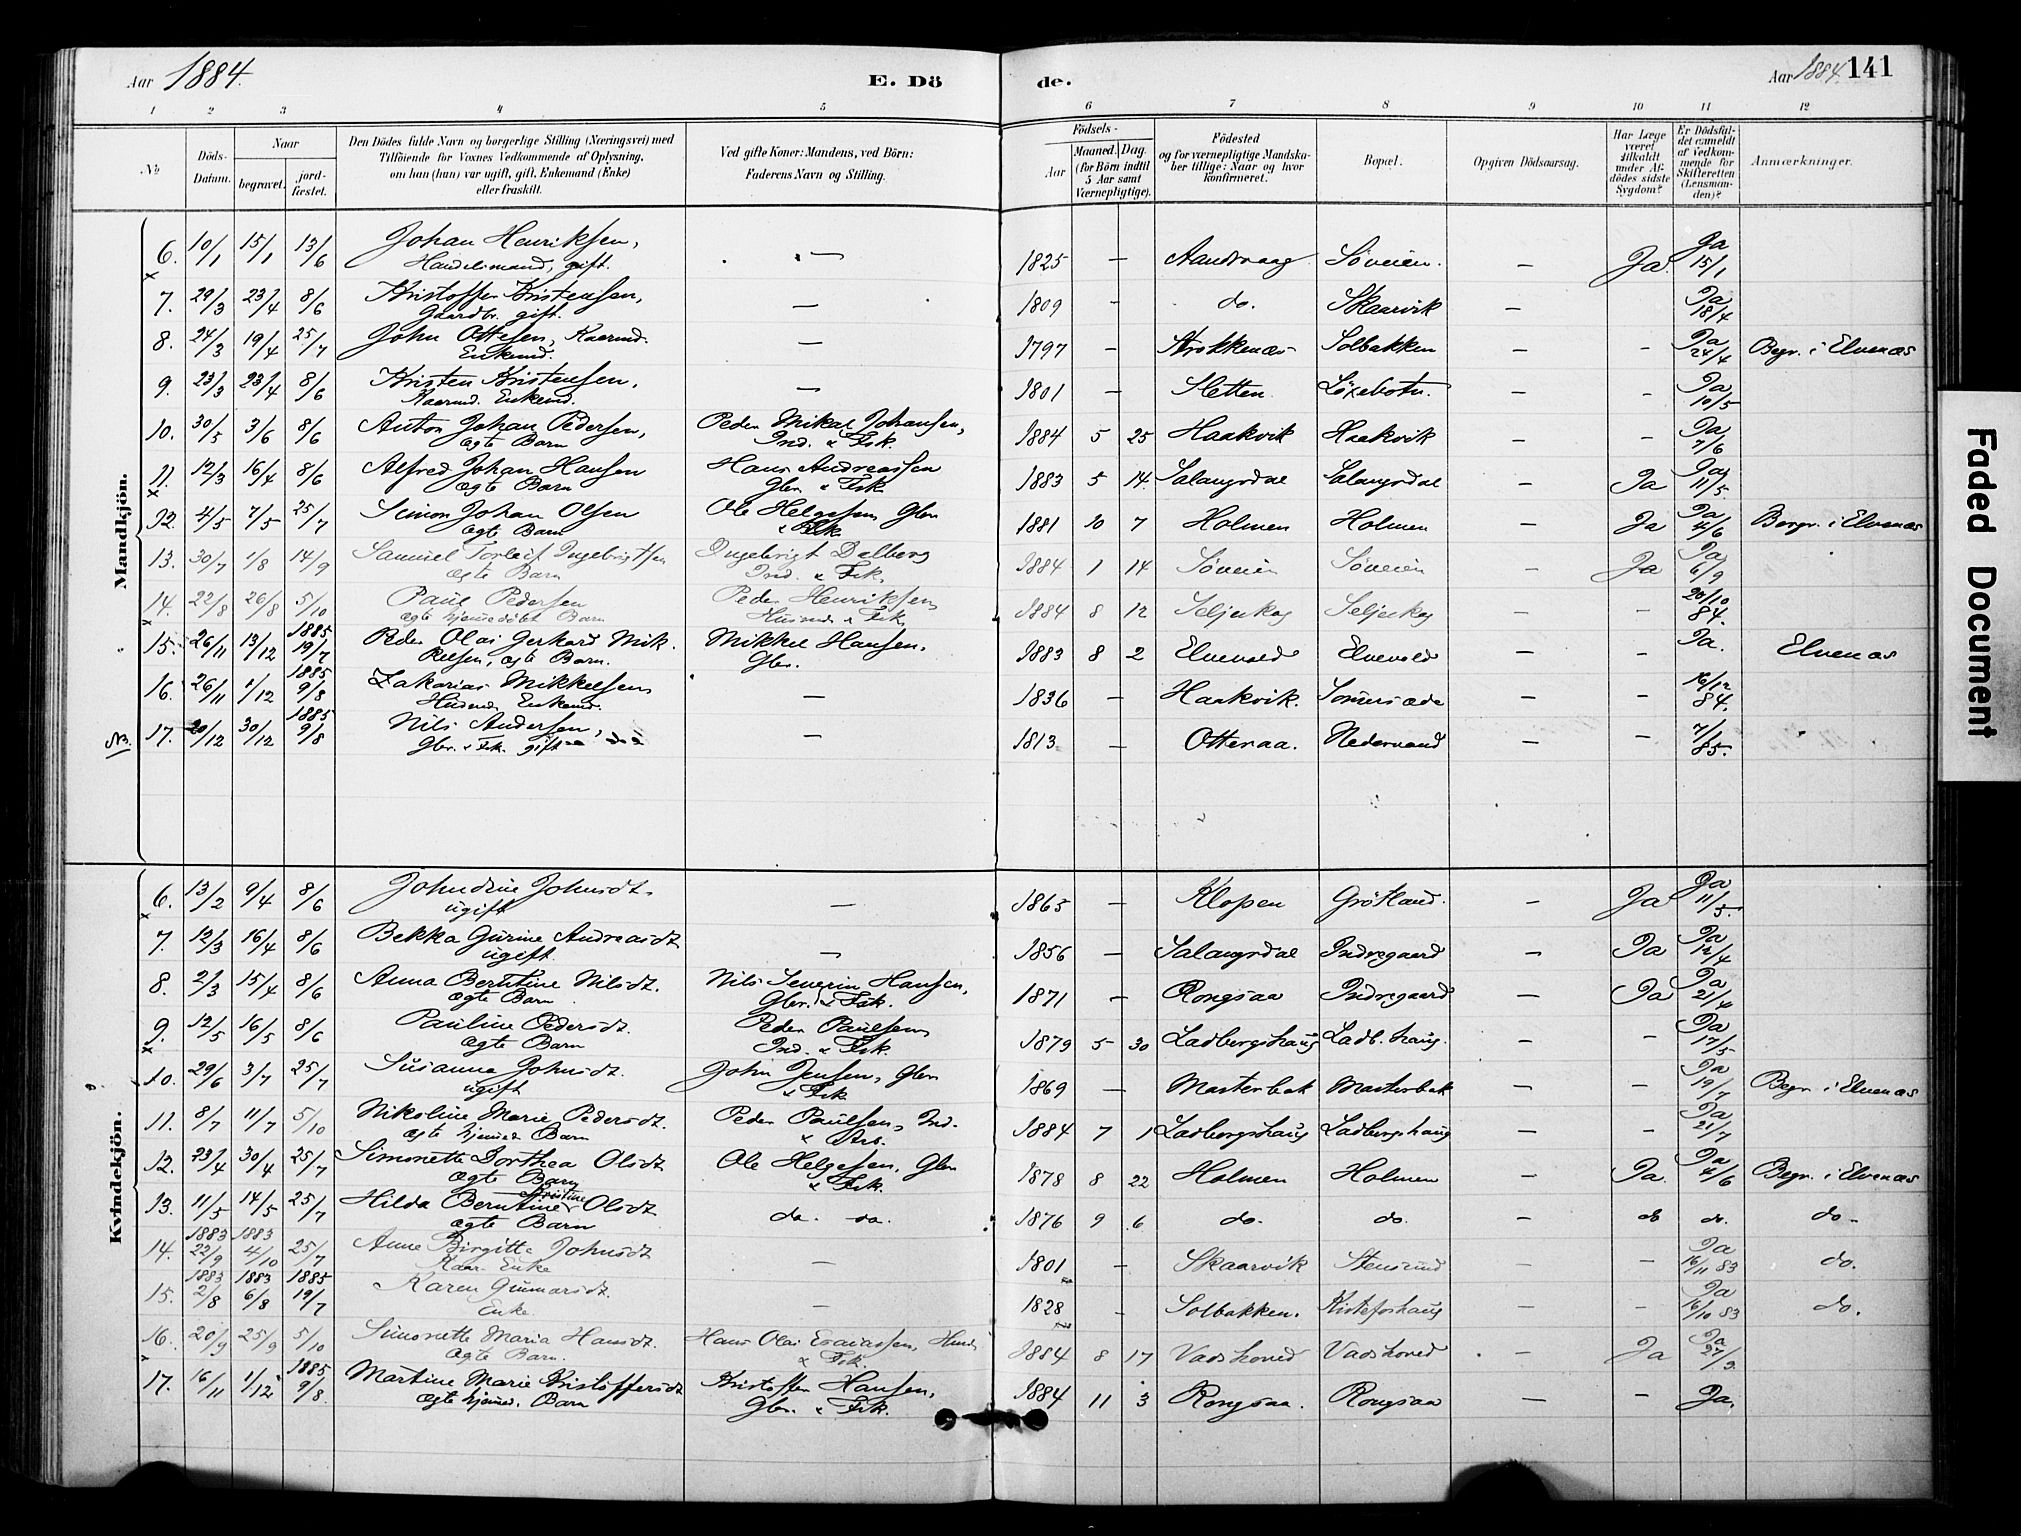 Aar 1884. E. Dö de. Aar 1884. 141
1 2 3 4 5 6 7 8 9 10 11 12
No Döds-Datum. Naar begravet. jordfæstet. Den Dödes fulde Navn og borgerlige Stilling (Næringsvei) med Tilföiende for Voxnes Vedkommende af Oplysning, om han (hun) var ugift, gift, Enkemand (Enke) eller fraskilt. Ved gifte Koner: Mandens, ved Börn: Faderens Navn og Stilling. Födsels- Aar Maaned. Dag. (for Börn indtil 5 Aar samt Værnepligtige). Födested og for værnepligtige Mandskaber tillige: Naar og hvor konfirmeret. Bopæl. Opgiven Dödsaarsag. Har Læge været tilkaldt under Afdödes sidste Sygdom? Er Dödsfaldet anmeldt af Vedkommende for Skifteretten (Lensmanden)? Anmærkninger.
Mandkjön.
6. 10/1 15/1 13/6 Johan Henriksen, Handelsmand, gift. — 1825 — Aandvaag Söveien. — Ja. Ja 15/1
7. 29/3 23/4 8/6 Kristoffer Kristensen, Gaardbr. gift. — 1809 — do. Skaarvik — Ja 18/4
8. 24/3 19/4 25/7 John Ottesen, Kaarmd. Enkemd. — 1797 — Strokkenæs Solbakken — — Ja 24/4 Begr. i Elvenæs
9. 23/3 23/4 8/6 Kristen Kristensen, Kaarmd. Enkemd. — 1801 — Sletten. Löxebotn. — — Ja 10/5
10. 30/5 3/6 8/6 Anton Johan Pedersen, ægte Barn Peder Mikal Johansen, Ind. & Fsk. 1884 5 25 Haakvik Haakvik — — Ja 7/6
11. 12/3 16/4 8/6 Alfred Johan Hansen ægte Barn Hans Andreassen Gbr. & Fsk 1883 5 14. Salangsdal Salangsdal — Ja Ja 11/5
12. 4/5 7/5 25/7 Simon Johan Olsen ægte Barn Ole Helgesen, Gbr & Fsk 1881 10 7 Holmen Holmen — Ja Ja 4/6 Begr. i Elvenæs
13. 30/7 1/8 14/9 Samuel Torleif Ingebrigtsen ægte Barn Ingebrigt Dalberg Ind. & Fsk. 1884 1 14 Söveien Söveien — Ja Ja 6/9
14. 22/8 26/8 5/10 Paul Pedersen ægte hjemmedöbt Barn Peder Henriksen, Husmd & Fsk, 1884 8 12 Seljeskog Seljeskog — — 20/10 84.
15. 26/11 13/12 1885 19/7 Peder Olai Gerhard Mikkelsen, ægte Barn. Mikkel Hansen, Gbr. 1883 8 2 Elvevold Elvevold — — Ja. Elvenæs
16. 26/11 1/12 1885 9/8 Zakarias Mikkelsen, Husmd, Enkemd. — 1836 — Haakvik. — — 16/12 84.
No. 17. 20/12 30/12 1885 9/8 Nils Andersen, Gbr. & Fsk. gift — 1813 — Otteraa. Nedervand — — 7/1 85.
Kvindekjön.
6. 13/2 9/4 8/6 Johndine Johnsdt. ugift — 1865 — Klopen Grötland. — Ja Ja 11/5.
7. 12/3 16/4 8/6 Bekka Gurine Andreasdt ugift — 1856 — Salangsdal Indregaard — Ja Ja 12/4
8. 2/3 15/4 8/6 Anna Berntine Nilsdt. ægte Barn Nils Severin Hansen, Gbr. & Fsk. 1871 — Rongsaa Indregaard — Ja Ja 21/4
9. 12/5 16/5 8/6 Pauline Pedersdt. ægte Barn Peder Paulsen, Ind. & Fsk. 1879 5 30 Ladbergshaug Ladb. haug. — — Ja 17/5
10. 29/6 3/7 25/7 Susanna Johnsdt. ugift John Jensen, Gbr & Fsk 1869 — Masterbak Masterbak — — Ja 19/7 Begr. i Elvenæs
11. 8/7 11/7 5/10 Nikoline Marie Pedersdt. ægte hjemmed. Barn Peder Paulsen, Ind. & Arb. 1884 7 1 Ladbergshaug Ladbergshaug — — Ja 21/7
12. 23/4 30/4 25/7 Simonette Dorthea Olsdt ægte Barn Ole Helgesen, Gbr & Fsk. 1878 8 22 Holmen Holmen — Ja. Ja 4/6 Begr. i Elvenæs
13. 11/5 14/5 25/7 Hilda Berntine Kristine Olsdt ægte Barn do. do. 1876 9 6 do. do. — do do. do.
14. 1883 22/9 1883 4/10 25/7 Anne Birgitte Johnsdt Kaar Enke — 1801 — Skaarvik Stensund — — Ja 16/11 83 do.
15. 1883 2/8 1883 6/8 1885 19/7 Karen Gunnarsdt. Enke. — 1828 — Solbakken. Kisteforshaug — — Ja 6/10 83 do.
16. 20/9 25/9 5/10 Simonette Maria Hansdt. ægte Barn. Hans Olai Esaiassen, Husm & Fsk. 1884 8 17 Vadshoved Vadshoved — Ja Ja
17. 16/11 1/12 1885 9/8. Martine Marie Kristoffersdt ægte hjemmed. Barn Kristoffer Hansen, Gbr. & Fsk. 1884 11 3 Rongsaa. Rongsaa — — Ja.
Faded Document